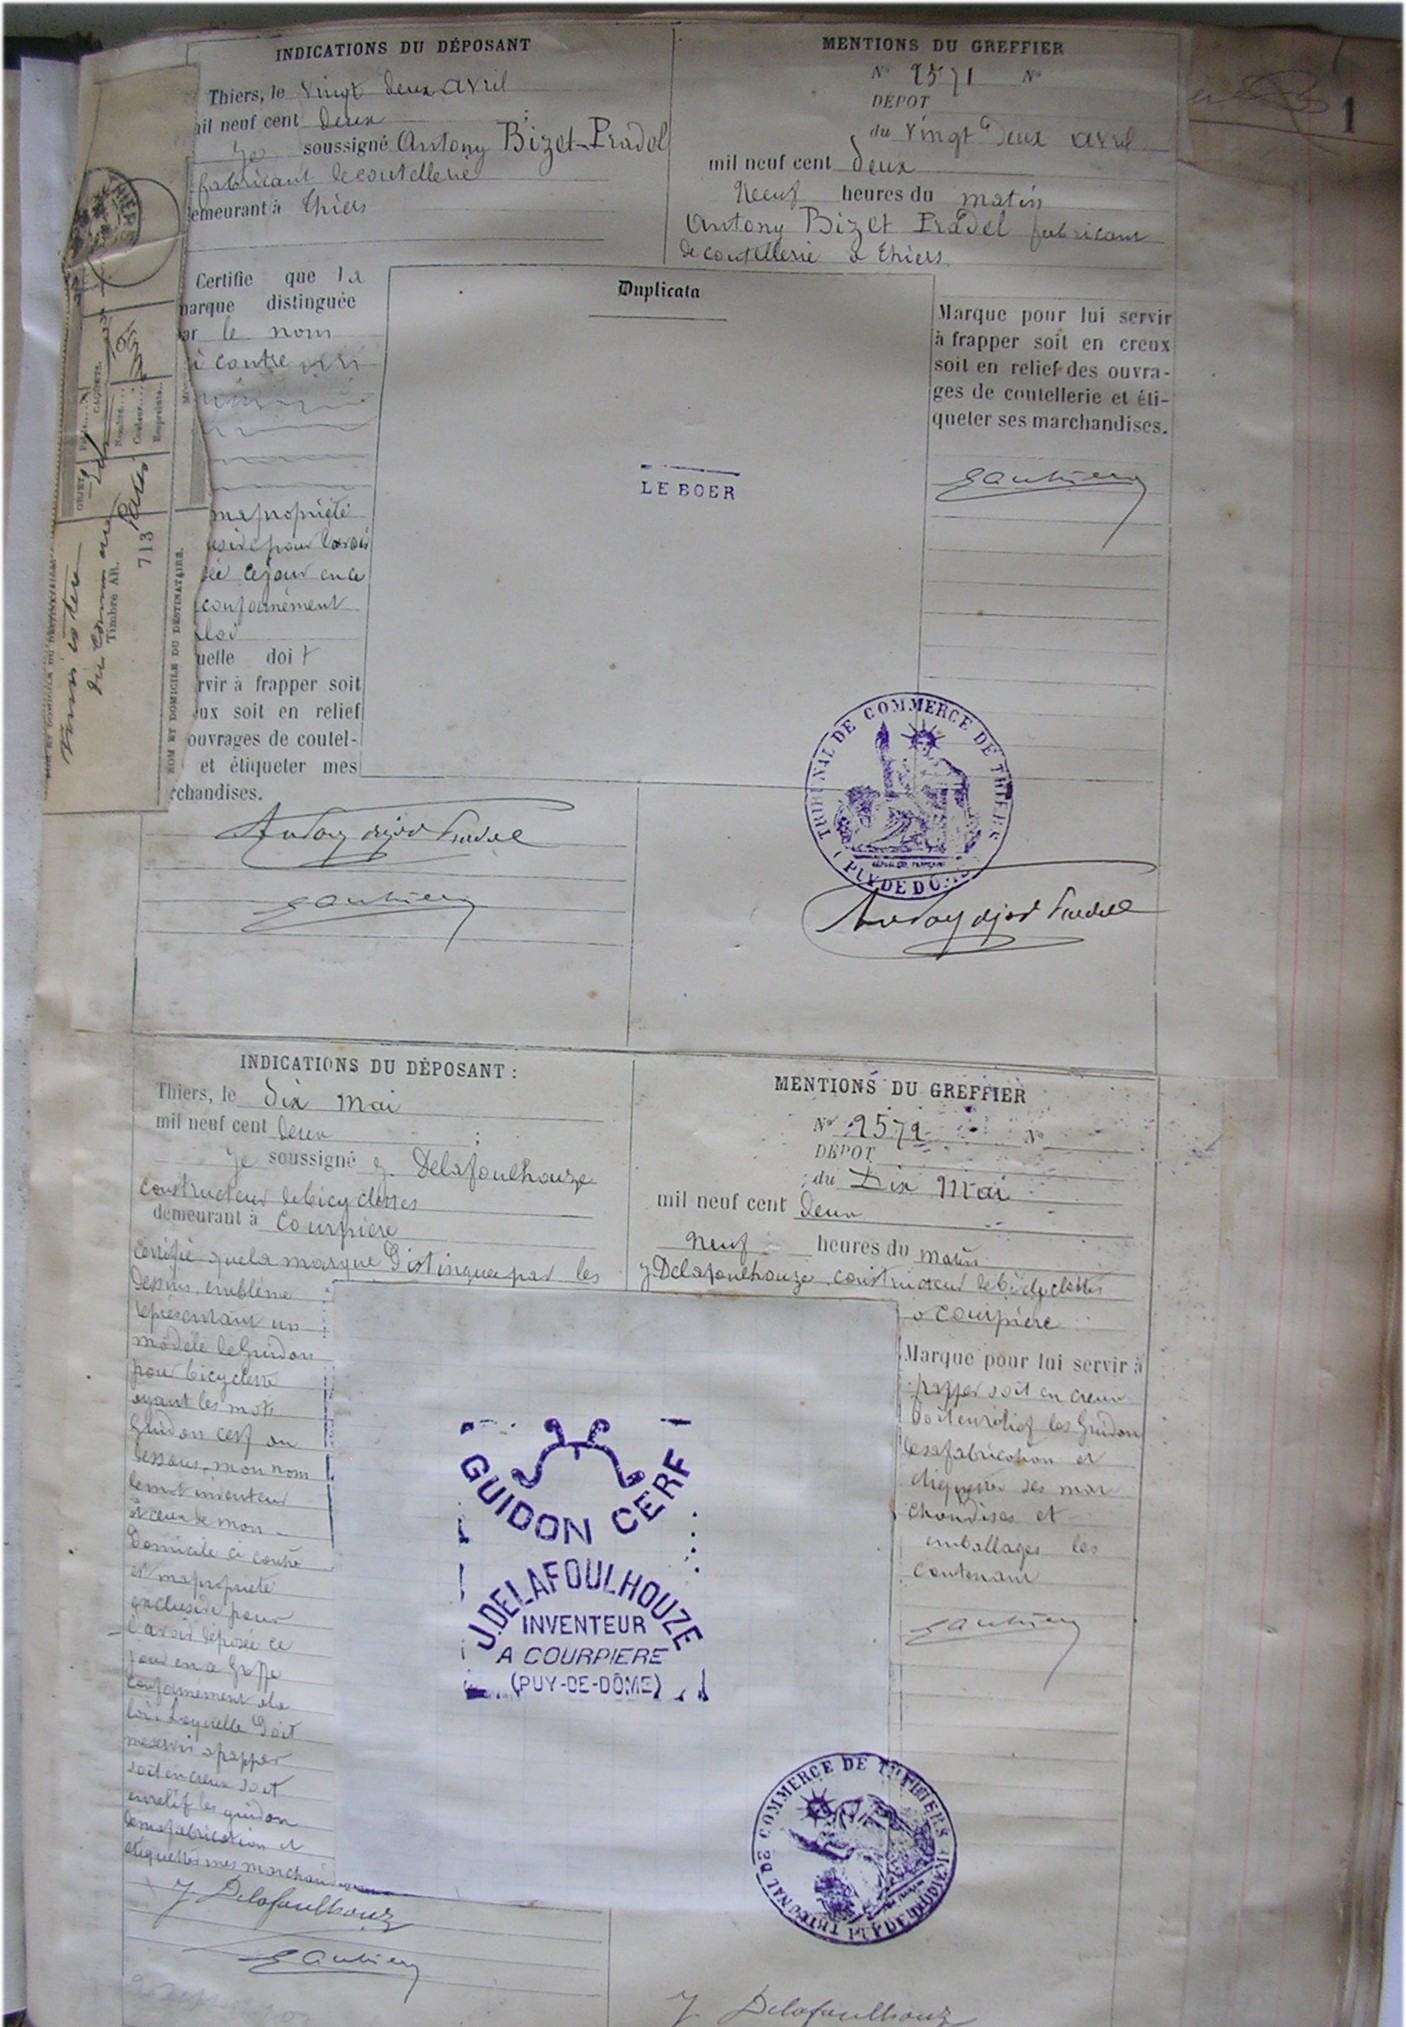 INDICATIONS DU DÉPOSANT
Thiers, le vingt deux avril
mil neuf cent deux
Je soussigné Antony Bizet-Pradel
fabricant de coutellerie
demeurant à Thiers
Certifie que la
marque distinguée
par le nom
ci contre
ma propriété
ce jour en ce
conformément
loi
quelle doit
rvir à frapper soit
eux soit en relief
ouvrages de coutel-
et étiqueter mes
rchandises.
MENTIONS DU GREFFIER
N° 2571 N°
DÉPOT
du vingt deux avril
mil neuf cent deux
Neuf heures du matin
Antony Bizet Pradel fabricant
de coutellerie à Thiers
Duplicata
LE BOER
Marque pour lui servir
à frapper soit en creux
soit en relief des ouvra-
ges de coutellerie et éti-
queter ses marchandises.
TRIBUNAL DE COMMERCE DE THIERS
RÉPUBLIQUE FRANÇAISE
(PUY DE DÔME)
1
THIERS
OBJET
CACHETS.
Nombre
Couleur
Empreinte
Timbre AR.
713
NOM ET DOMICILE DU DESTINATAIRE.
INDICATIONS DU DÉPOSANT :
Thiers, le Dix Mai
mil neuf cent deux ;
Je soussigné J. Delafoulhouze
constructeur de bicyclettes
demeurant à Courpière
certifie que la marque distinguée par les
dessins, emblème
représentant un
modèle de Guidon
pour bicyclette
ayant les mots
Guidon cerf au
dessous, mon nom
le mot inventeur
et ceux de mon
domicile ci contre
est ma propriété
exclusive pour
l'avoir déposée ce
jour en ce Greffe
conformement à la
loi. Laquelle doit
me servir à frapper
soit en creux soit
en relief les guidon
de ma fabrication et
étiqueter mes marchandises
J. Delafoulhouze
MENTIONS DU GREFFIER
N° 2572 N°
DÉPOT
du Dix Mai
mil neuf cent deux
Neuf heures du matin
J. Delafoulhouze, constructeur de bicyclettes
à Courpière
Marque pour lui servir à
frapper soit en creux
soit en relief les Guidon
de sa fabrication et
étiqueter ses mar
chandises et
emballages les
contenant
GUIDON CERF
J. DELAFOULHOUZE
INVENTEUR
A COURPIERE
(PUY-DE-DÔME)
TRIBUNAL DE COMMERCE DE THIERS
J. Delafoulhouze